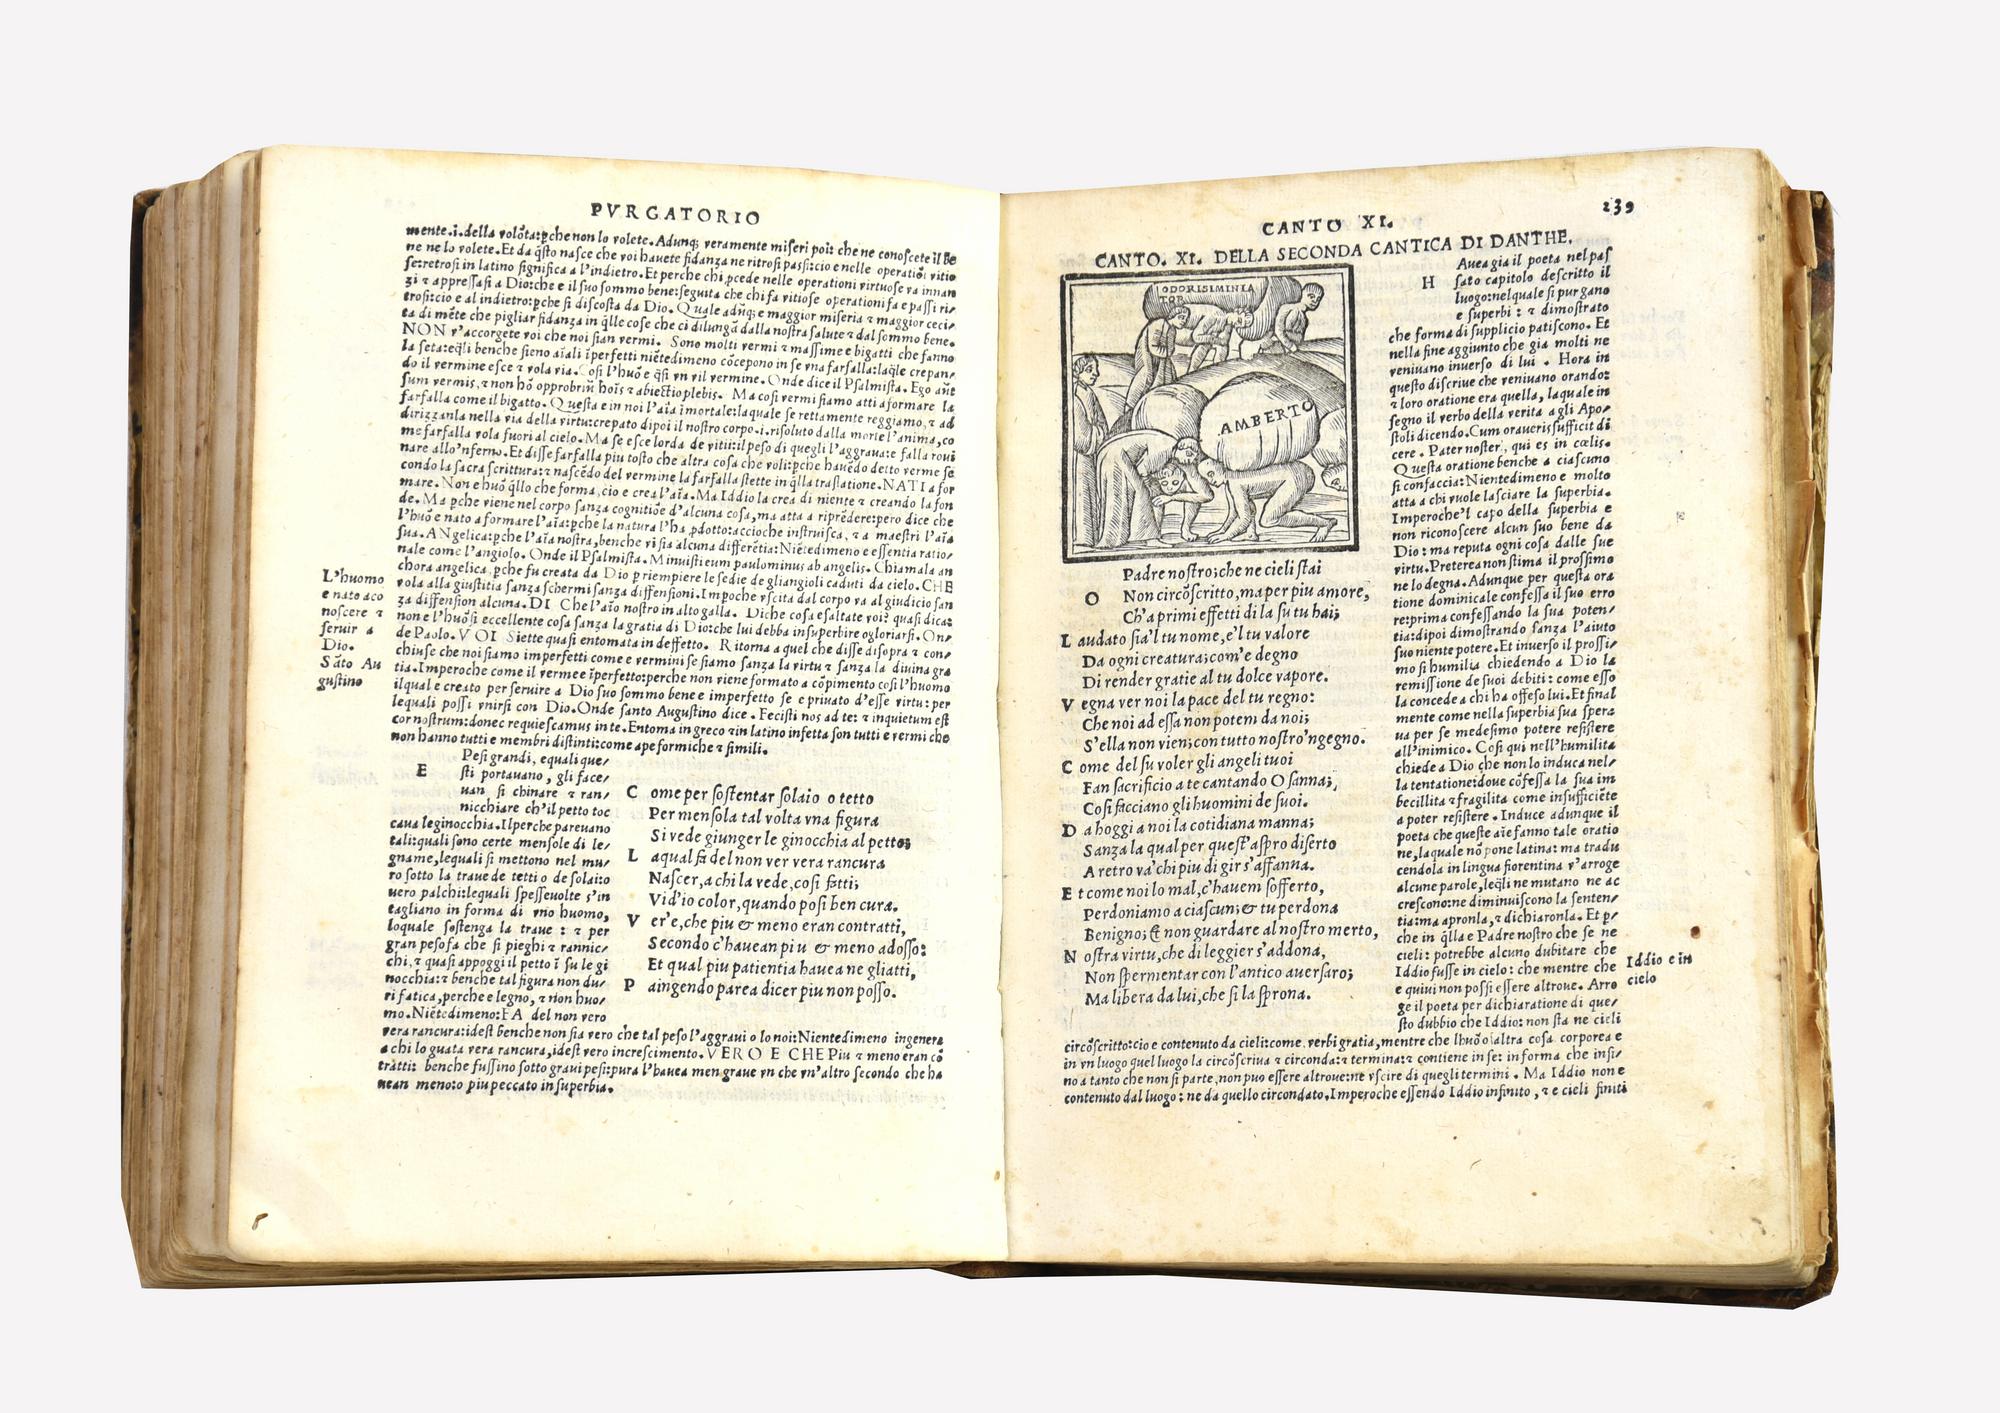 PVRGATORIO
mente.i.della volõta:ꝑche non lo volete. Adunqꝫ veramente miseri poi: che ne conoscete il be
ne ne lo volete. Et da q̃sto nasce che voi hauete fidanza ne ritrosi passi:cio e nelle operatiõi vitio
se:retrosi in latino significa a l'indietro. Et perche chi ꝓcede nelle operationi virtuose va innan
zi ⁊ appressasi a Dio:che e il suo sommo bene:seguita che chi fa vitiose operationi fa e passi ri/
trosi:cio e al indietro:ꝑche si discosta da Dio. Quale adũqꝫ e maggior miseria ⁊ maggior ceci/
ta di mẽte che pigliar fidanza in q̃lle cose che ci dilungã dalla nostra salute ⁊ dal sommo bene.
NON v'accorgete voi che noi sian vermi. Sono molti vermi ⁊ massime e bigatti che fanno
la seta:eq̃li benche sieno aĩali ĩperfetti niẽtedimeno cõcepono in se vna farfalla:laq̃le crepan/
do il vermine esce ⁊ vola via. Cosi l'huõ e q̃si vn vil vermine. Onde dice il Psalmista. Ego aũt
sum vermis, ⁊ non hõ opprobriũ hoĩs ⁊ abiectio plebis. Ma cosi vermi siamo atti a formare la
farfalla come il bigatto. Questa e in noi l'aĩa ĩmortale:laquale se rettamente reggiamo, ⁊ ad
dirizzanla nella via della virtu:crepato dipoi il nostro corpo.i.risoluto dalla morte l'anima, co
me farfalla vola fuori al cielo. Ma se esce lorda de vitii:il peso di quegli l'aggraua:e falla roui
nare allo'nferno. Et disse farfalla piu tosto che altra cosa che voli:ꝑche hauẽdo detto verme se
condo la sacra scrittura:⁊ nascẽdo del vermine la farfalla stette in q̃lla traslatione. NATI a for
mare. Non e huõ q̃llo che forma, cio e crea l'aĩa. Ma Iddio la crea di niente ⁊ creando la fon
de. Ma ꝑche viene nel corpo sanza cognitiõe d'alcuna cosa, ma atta a riprẽdere:pero dice che
l'huõ e nato a formare l'aĩa:ꝑche la natura l'ha ꝓdotto:accioche instruisca, ⁊ a maestri l'aĩa
sua. ANgelica:ꝑche l'aĩa nostra, benche vi sia alcuna differẽtia: Niẽtedimeno e essentia ratio/
nale come l'angiolo. Onde il Psalmista. Minuisti eum paulominus ab angelis. Chiamala an
chora angelica, ꝑche fu creata da Dio ꝑ riempiere le sedie de gli angioli caduti da cielo. CHE
vola alla giustitia sanza schermi sanza diffensioni. Impoche vscita dal corpo va al giudicio san
za diffension alcuna. DI Che l'aĩo nostro in alto galla. Di che cosa esaltate voi? quasi dica:
non e l'huõ si eccellente cosa sanza la gratia di Dio:che lui debba insuperbire o gloriarsi. On/
de Paolo. VOI Siette quasi entomata in deffetto. Ritorna a quel che disse di sopra ⁊ con/
chiuse che noi siamo imperfetti come e vermini se siamo sanza la virtu ⁊ sanza la diuina gra
tia. Imperoche come il verme e ĩperfetto:perche non viene formato a cõpimento cosi l'huomo
ilqual e creato per seruire a Dio suo sommo bene e imperfetto se e priuato d'esse virtu: per
lequali possi vnirsi con Dio. Onde santo Augustino dice. Fecisti nos ad te: ⁊ inquietum est
cor nostrum:donec requiescamus in te. Entoma in greco ⁊ in latino infetta son tutti e vermi che
non hanno tutti e membri distinti:come ape formiche ⁊ simili.
L'huomo
e nato aco
noscere ⁊
seruir a
Dio.
Sãto Au
gustino
E
Pesi grandi, equali que/
sti portauano, gli face/
uan si chinare ⁊ ran/
nicchiare ch'il petto toc
caua le ginocchia. Ilperche pareuano
tali:quali sono certe mensole di le/
gname, lequali si mettono nel mu/
ro sotto la traue de tetti o de solai:o
vero palchi:lequali spesse volte s'in
tagliano in forma di vno huomo,
loquale sostenga la traue : ⁊ per
gran peso fa che si pieghi ⁊ rannic/
chi, ⁊ quasi appoggi il petto ĩ su le gi
nocchia:⁊ benche tal figura non du/
ri fatica, perche e legno, ⁊ non huo/
mo. Niẽtedimeno:FA del non vero
vera rancura:idest benche non sia vero che tal peso l'aggraui o lo noi:Nientedimeno ingenera
a chi lo guata vera rancura, idest vero increscimento. VERO E CHE Piu ⁊ meno eran cõ
tratti: benche fussino sotto graui pesi:pura l'hauea men graue vn che vn'altro secondo che ha
uean meno:o piu peccato in superbia.
C ome per sostentar solaio o tetto
Per mensola tal volta vna figura
Si vede giunger le ginocchia al petto;
L aqual fa del non ver vera rancura
Nascer, a chi la vede, cosi fatti;
Vid'io color, quando posi ben cura.
V er'e, che piu & meno eran contratti,
Secondo c'hauean piu & meno adosso:
Et qual piu patientia hauea ne gli atti,
P aingendo parea dicer piu non posso.
CANTO XI.
239
CANTO. XI. DELLA SECONDA CANTICA DI DANTHE.
ODORISI MINIA
TOR
AMBERTO
O
Padre nostro; che ne cieli stai
Non circõscritto, ma per piu amore,
Ch'a primi effetti di la su tu hai;
L audato sia'l tu nome, e'l tu valore
Da ogni creatura; com'e degno
Di render gratie al tu dolce vapore.
V egna ver noi la pace del tu regno:
Che noi ad essa non potem da noi;
S'ella non vien; con tutto nostro'ngegno.
C ome del su voler gli angeli tuoi
Fan sacrificio a te cantando Osanna;
Cosi facciano gli huomini de suoi.
D a hoggi a noi la cotidiana manna;
Sanza la qual per quest'aspro diserto
A retro va'chi piu di gir s'affanna.
E t come noi lo mal, c'hauem sofferto,
Perdoniamo a ciascun; & tu perdona
Benigno; & non guardare al nostro merto,
N ostra virtu, che di leggier s'addona,
Non spermentar con l'antico auersaro;
Ma libera da lui, che si la sprona.
H
Auea gia il poeta nel pas
sato capitolo descritto il
luogo:nelquale si purgano
e superbi : ⁊ dimostrato
che forma di supplicio patiscono. Et
nella fine aggiunto che gia molti ne
veniuano inuerso di lui . Hora in
questo discriue che veniuano orando:
⁊ loro oratione era quella, laquale in
segno il verbo della verita a gli Apo/
stoli dicendo. Cum oraueris sufficit di
cere . Pater noster, qui es in cœlis.
Questa oratione benche a ciascuno
si confaccia: Nientedimeno e molto
atta a chi vuole lasciare la superbia.
Imperoche'l capo della superbia e
non riconoscere alcun suo bene da
Dio : ma reputa ogni cosa dalle sue
virtu. Preterea non stima il prossimo
ne lo degna. Adunque per questa ora
tione dominicale confessa il suo erro
re:prima confessando la sua poten/
tia:dipoi dimostrando sanza l'aiuto
suo niente potere. Et inuerso il prossi/
mo si humilia chiedendo a Dio la
remissione de suoi debiti : come esso
la concede a chi ha offeso lui. Et final
mente come nella superbia sua spera
ua per se medesimo potere resistere
all'inimico. Cosi qui nell'humilita
chiede a Dio che non lo induca nel/
la tentatione:doue cõfessa la sua im
becillita ⁊ fragilita come insufficiẽte
a poter resistere . Induce adunque il
poeta che queste aĩe fanno tale oratio
ne, laquale nõ pone latina: ma tradu
cendola in lingua fiorentina v'arroge
alcune parole, leq̃li ne mutano ne ac
crescono:ne diminuiscono la senten/
tia:ma apronla, ⁊ dichiaronla. Et ꝑ/
che in q̃lla e Padre nostro che se ne
cieli: potrebbe alcuno dubitare che
Iddio fusse in cielo : che mentre che
e quiui non possi essere altroue. Arro
ge il poeta per dichiaratione di que/
sto dubbio che Iddio: non sta ne cieli
circõscritto:cio e contenuto da cieli:come, verbi gratia, mentre che lhuõ o altra cosa corporea e
in vn luogo quel luogo la circõscriua ⁊ circonda:⁊ termina:⁊ contiene in se: in forma che insi/
no a tanto che non si parte, non puo essere altroue:ne vscire di quegli termini . Ma Iddio non e
contenuto dal luogo : ne da quello circondato. Imperoche essendo Iddio infinito , ⁊ e cieli finiti
Iddio e in
cielo